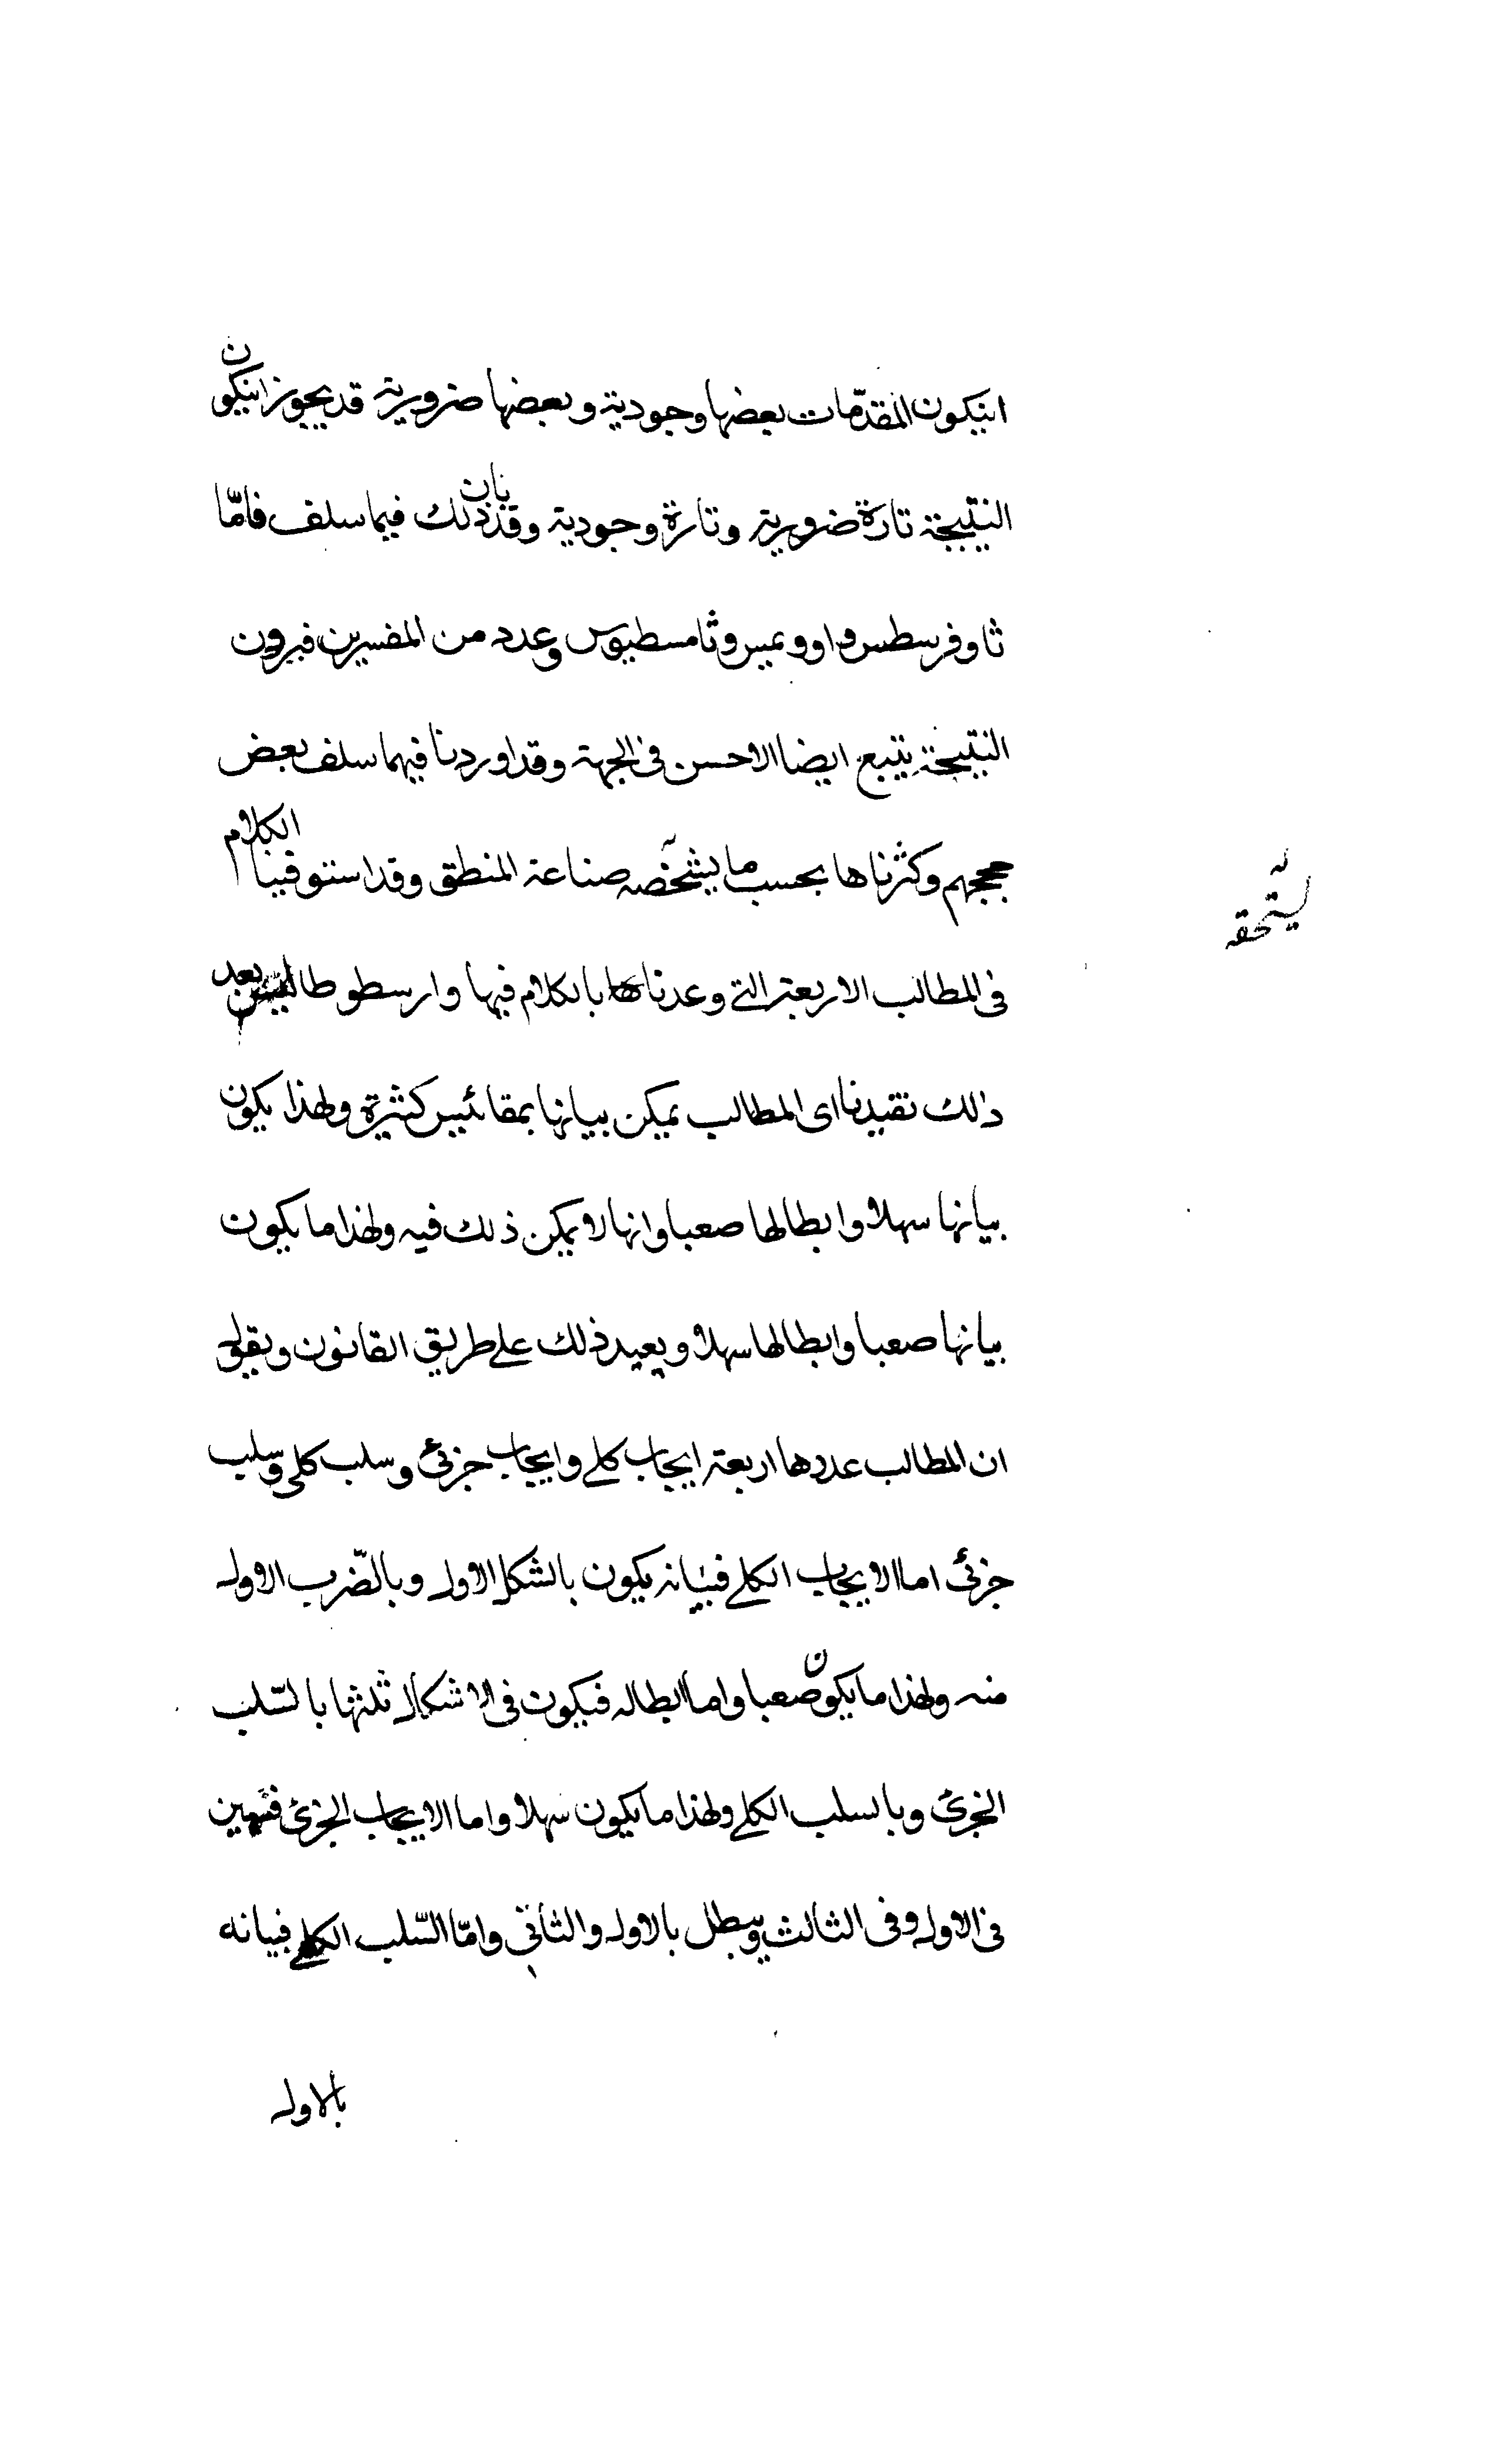 انيكون المقدّمات بعضها وجودية وبعضها ضرورية قد يجوز انيكون
النتيجة تارة ضرورية وتارة وجودية وقد بان ذلك فيما سلف فامّا
ثاوفرسطس واووميس وثامسطيوس وعدد من المفسرين فيرون
النتيجة يتبع ايضا الاحسن فى الجهة وقد اوردنا فيهما سلف بعض
حججهم وكثرناها بحسب ما يشخصّه صناعة المنطق وقد استوفينا الكلام
يستحقه
فى المطالب الاربعة التى وعدنا بالكلام فيها وارسطوطاليس بعد
ذلك تفيدنا اى المطالب يمكن بيانها بمقائيس كثيرة ولهذا يكون
بيانها سهلا وابطالها صعبا وانها لا يمكن ذلك فيه ولهذا ما يكون
بيانها صعبا وابطالها سهلا ويعيد ذلك على طريق القانون ويقول
ان المطالب عددها اربعة ايجاب كلى وايجاب جزئى وسلب كلى وسلب
جزئى اما الايجاب الكلى فبيانه يكون بالشكل الاول وبالضّرب الاول
منه ولهذا ما يكون صعبا واما ابطاله فيكون فى الاشكال ثلثها بالسّلب
الجزئى وبالسلب الكلى ولهذا ما يكون سهلا واما الايجاب الجزئى
فى الاول وفى الثالث ويبطل بالاول والثانى وامّا السّلب الكلى فبيانه
بالاول